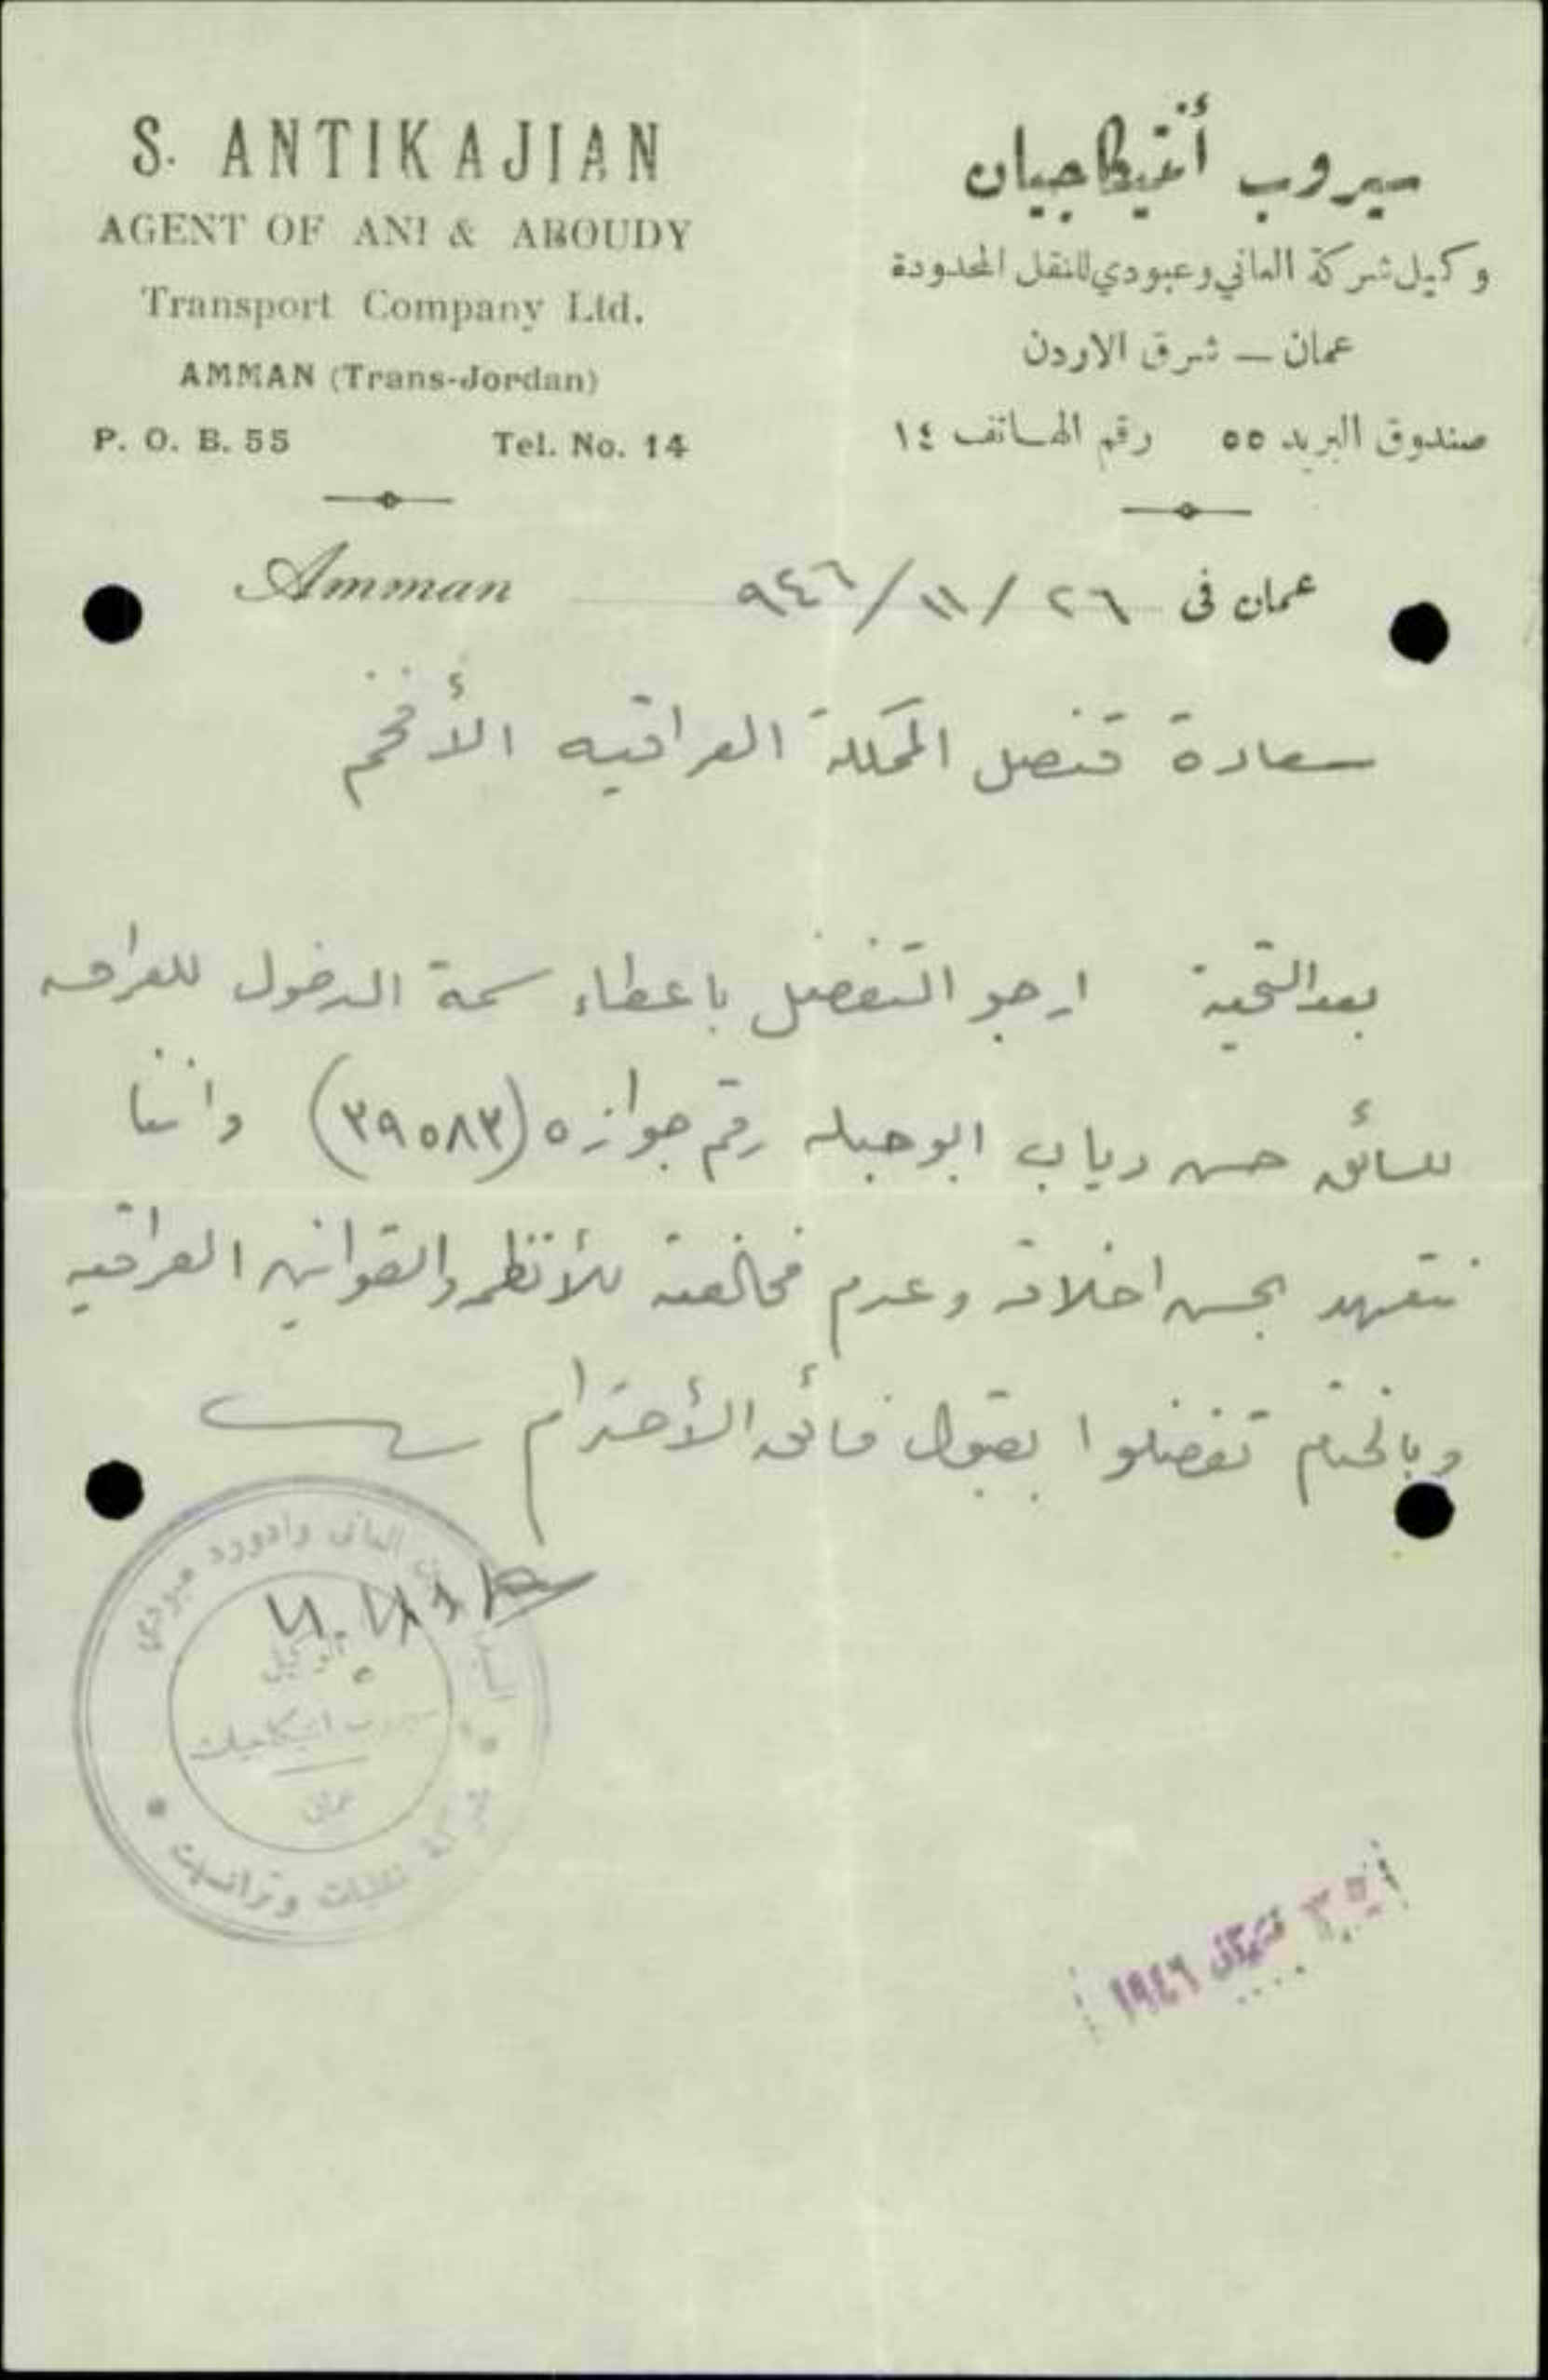 S. ANTIKAJIAN
AGENT OF ANI & ABOUDY
Transport Company Ltd.
AMMAN (Trans-Jordan)
P. O. B. 55 Tel. No. 14
سيروب أنتيكاجيان
وكيل شركة العاني وعبودي للنقل المحدودة
عمان — شرق الاردن
صندوق البريد ٥٥ رقم الهاتف ١٤
Amman
عمان في ٢٦ / ١١ / ٩٤٦
سعادة قنصل المملكة العراقيه الأفخم
بعد التحية ارجو التفضل باعطاء سمة الدخول للعراق
للسائق حسن دياب ابو جبله رقم جوازه (٣٩٥٨٣) واننا
نتعهد بحسن اخلاقه وعدم مخالفته للأنظمه والقوانين العراقيه
وبالختام تفضلوا بقبول فائق الأحترام
العاني وادورد عبودي
سيروب انتيكاجيان
عمان
شركة نقليات وترانسيت
١٩٤٦